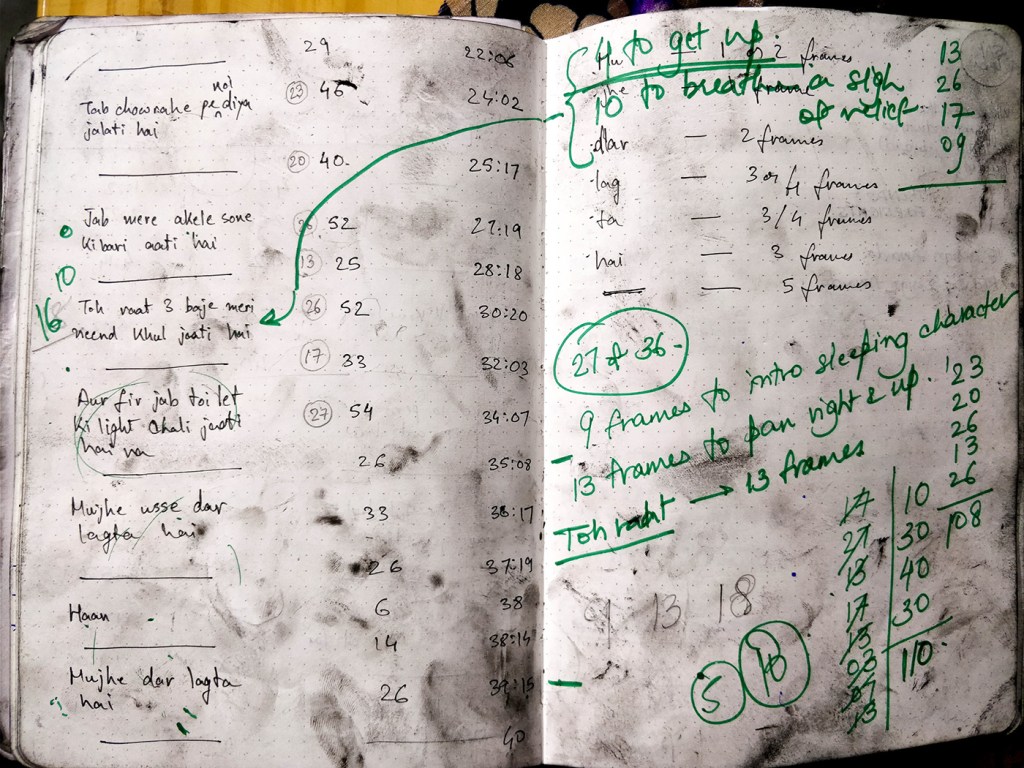 29 22:06
not
Tab chowrahe pe diya 23 46 24:02
jalati hai
20 40 25:17
Jab mere akele sone 52 27:19
ki bari aati hai
10 13 25 28:18
16 Toh raat 3 baje meri 26 52 30:20
neend khul jaati hai
17 33 32:03
Aur fir jab toilet 27 54 34:07
ki light chali jaati
hai na
26 35:08
Mujhe usse dar 33 36:17
lagta hai
26 37:19
Haan 6 38
14 38:14
Mujhe dar lagta 26 39:15
hai
40
4 to get up 13
Mu — 1 2 frames
10 to breath a sigh 26
of relief 17
dar — 2 frames 09
lag — 3 or 4 frames
ta — 3/4 frames
hai — 3 frames
— — 5 frames
27 & 36
- 9 frames to intro sleeping character
13 frames to pan right & up.
Toh raat → 13 frames
23
20
26
13
26
108
17 10
27 30
13 40
17 30
13 110
03
07
13
9 13 18
5 10